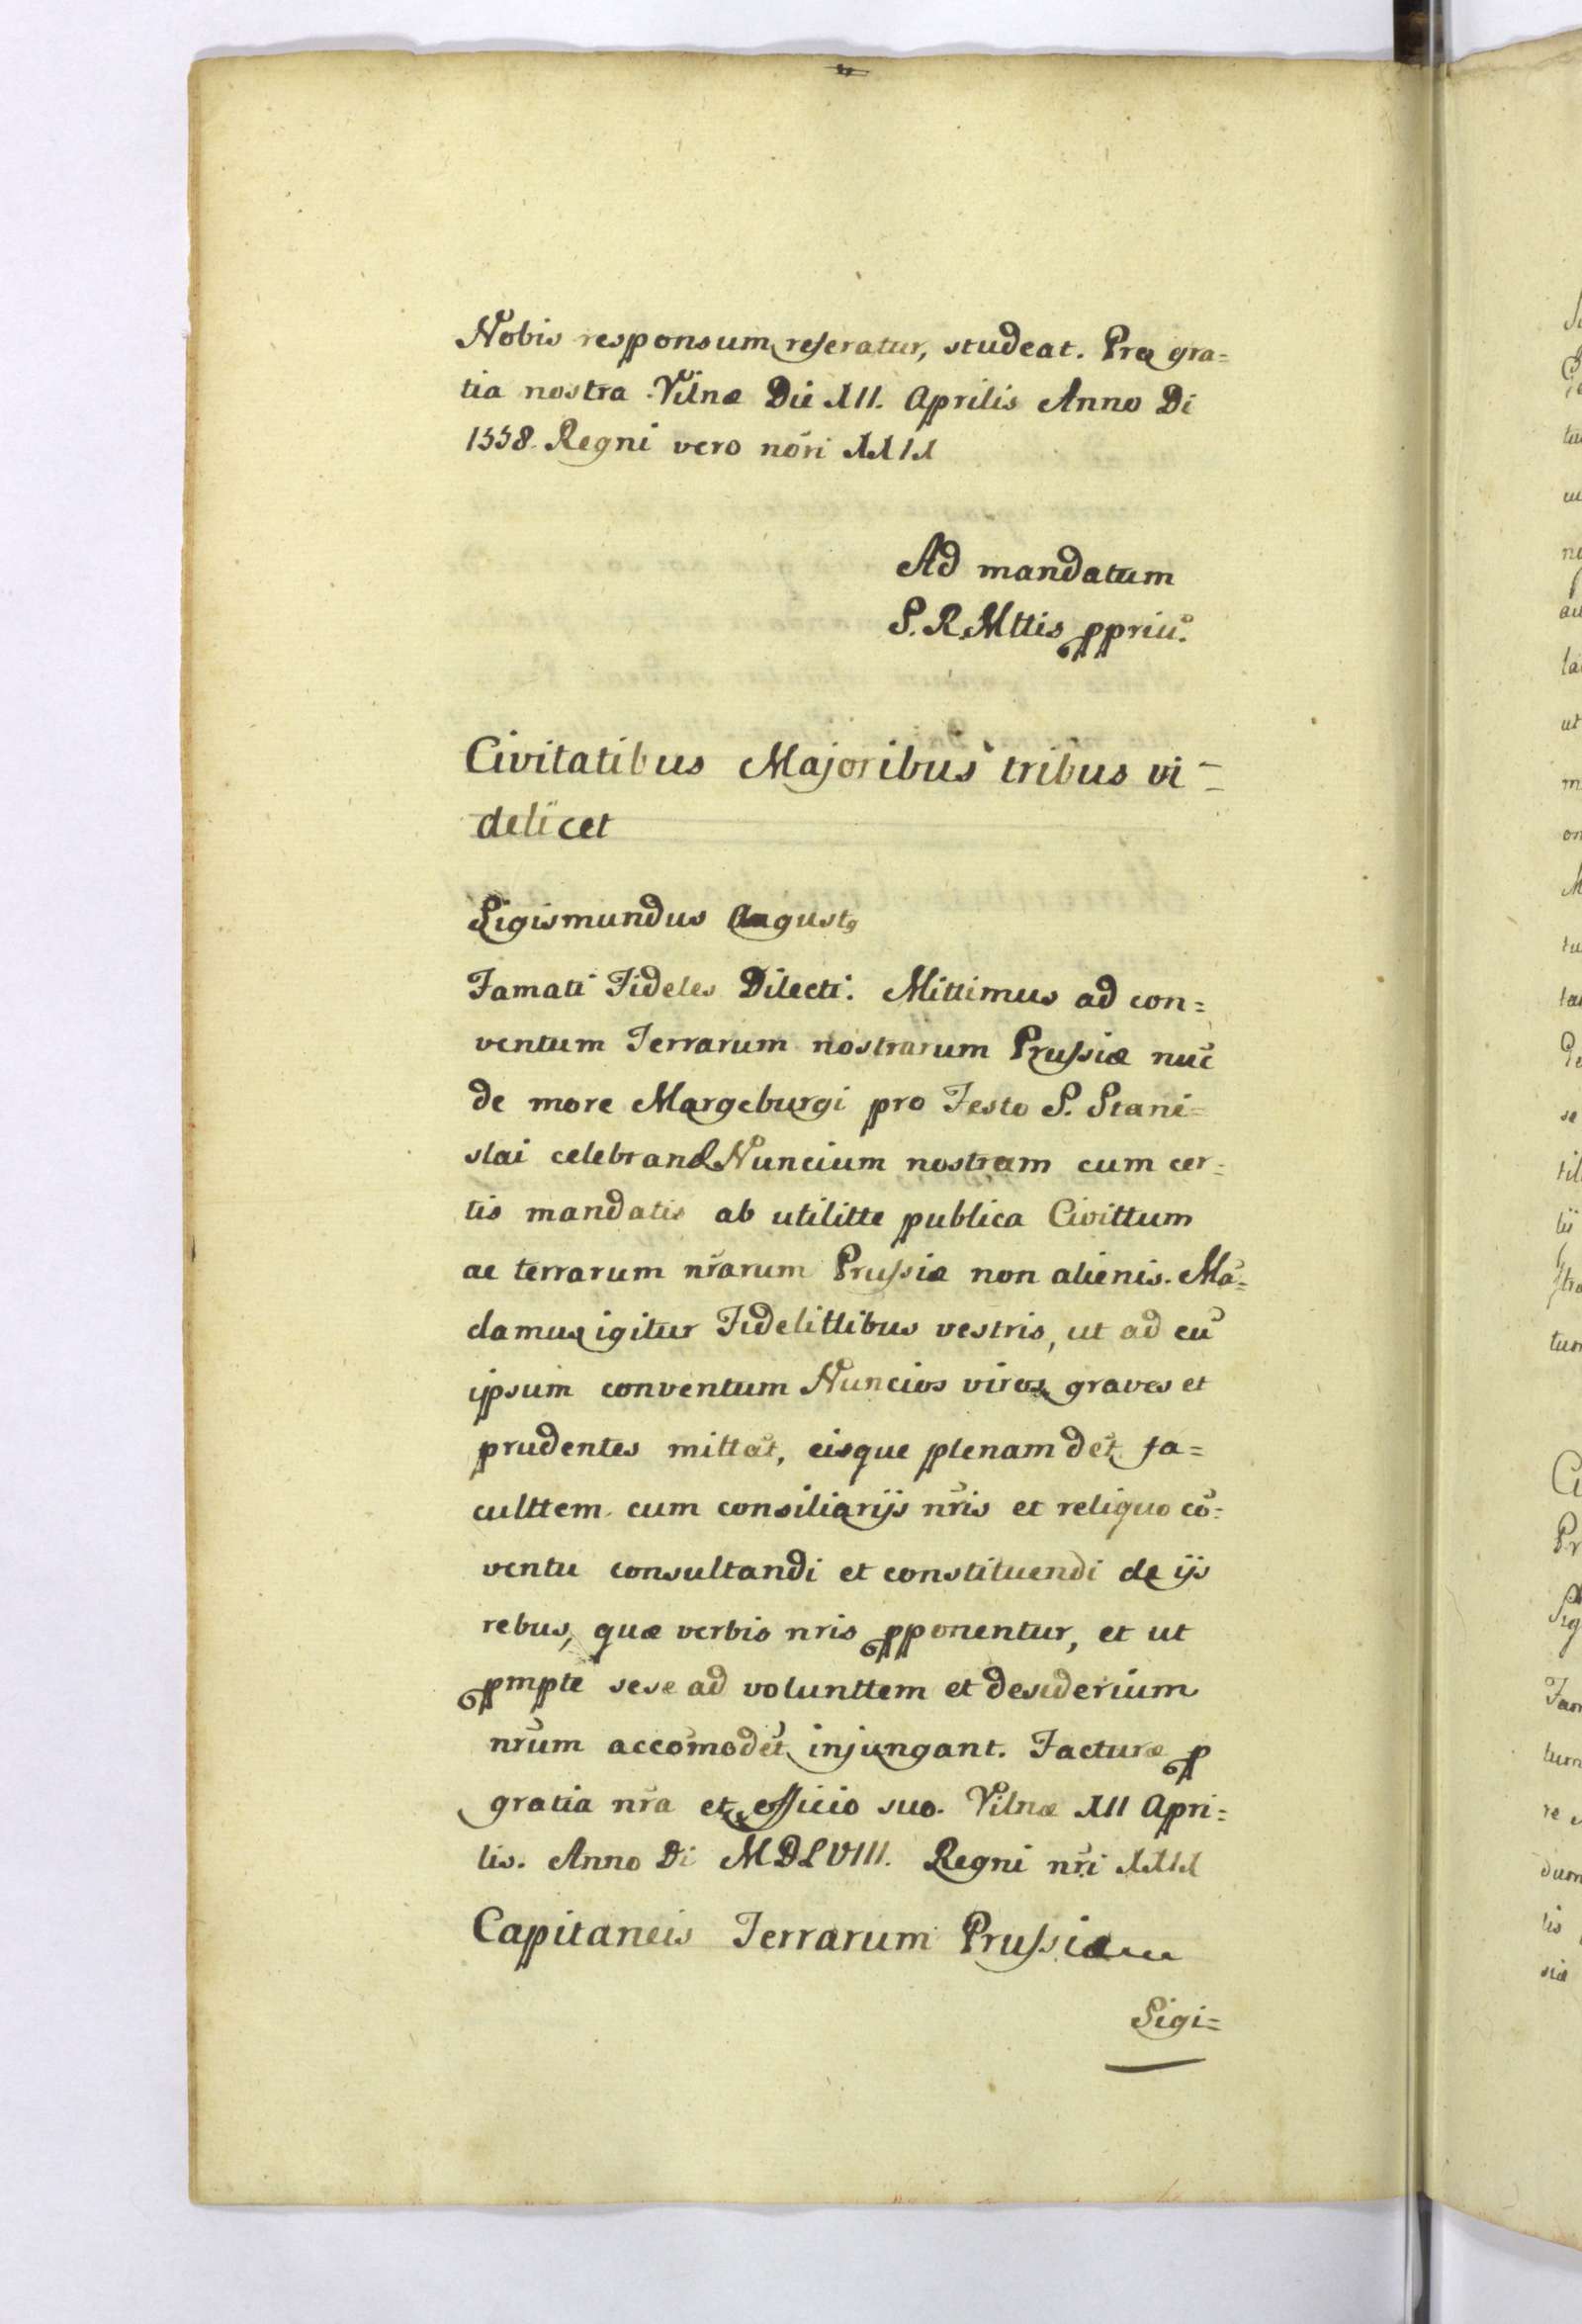 Nobis responsum referatur, studeat. Pro gra=
tia nostra Vilnæ Die XII. Aprilis Anno Di
1558. Regni vero nōri XXIX
Ad mandatum
S. R. Mttis ppriū.
Civitatibus Majoribus tribus vi=
delicet
Sigismundus August9
Famati Fideles Dilecti. Mittimus ad con=
ventum Terrarum nostrarum Prussiæ nuc̄
de more Margeburgi pro Festo S. Stani=
slai celebrand Nuncium nostrum cum cer=
tis mandatis ab utilitte publica Civittum
ac terrarum nr̄arum Prussiæ non alienis. Mā=
damus igitur Fidelittibus vestris, ut ad eū
ipsum conventum Nuncios viros graves et
prudentes mittāt, eisque plenam det fa=
culttem cum consiliarijs nr̄is et reliquo cō=
ventu consultandi et constituendi de ijs
rebus, quæ verbis nris pponentur, et ut
pmpte sese ad volunttem et desiderium
nr̄um accōmodēt injungant. Facturæ p
gratia nr̄a et officio suo. Vilnæ XII Apri=
lis. Anno Di MDLVIII. Regni nr̄i XXIX
Capitaneis Terrarum Prussiæ
Sigi=